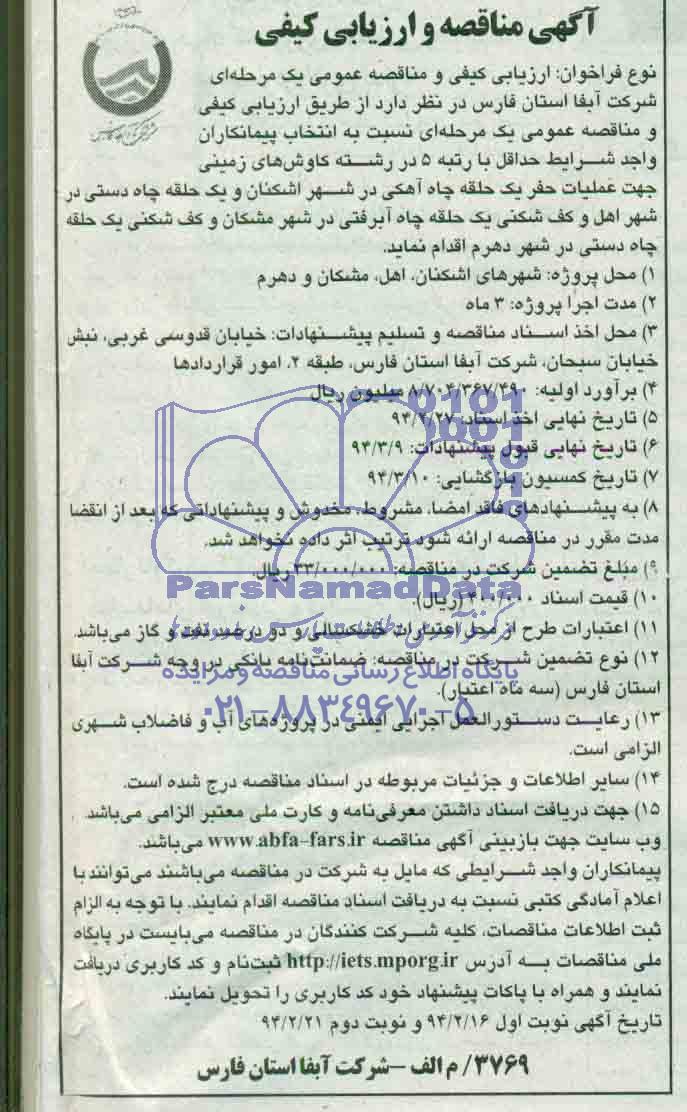 آگهی مناقصه و ارزیابی کیفی
نوع فراخوان: ارزیابی کیفی و مناقصه عمومی یک مرحله‌ای
شرکت آبفا استان فارس در نظر دارد از طریق ارزیابی کیفی
و مناقصه عمومی یک مرحله‌ای نسبت به انتخاب پیمانکاران
واجد شرایط حداقل با رتبه ۵ در رشته کاوش‌های زمینی
جهت عملیات حفر یک حلقه چاه آهکی در شهر اشکنان و یک حلقه چاه دستی در
شهر اهل و کف شکنی یک حلقه چاه آبرفتی در شهر مشکان و کف شکنی یک حلقه
چاه دستی در شهر دهرم اقدام نماید.
۱) محل پروژه: شهرهای اشکنان، اهل، مشکان و دهرم
۲) مدت اجرا پروژه: ۳ ماه
۳) محل اخذ اسناد مناقصه و تسلیم پیشنهادات: خیابان قدوسی غربی، نبش
خیابان سبحان، شرکت آبفا استان فارس، طبقه ۲، امور قراردادها
۴) برآورد اولیه: ۸/۷۰۴/۳۶۷/۴۹۰ میلیون ریال
۵) تاریخ نهایی اخذ اسناد: ۹۴/۲/۲۷
۶) تاریخ نهایی قبول پیشنهادات: ۹۴/۳/۹
۷) تاریخ کمسیون بازگشایی: ۹۴/۳/۱۰
۸) به پیشنهادهای فاقد امضا، مشروط، مخدوش و پیشنهاداتی که بعد از انقضا
مدت مقرر در مناقصه ارائه شود ترتیب اثر داده نخواهد شد.
۹) مبلغ تضمین شرکت در مناقصه: ۳۳/۰۰۰/۰۰۰ ریال
ParsNamadData
۱۰) قیمت اسناد ۴۰۰/۰۰۰ (ریال).
۱۱) اعتبارات طرح از محل اعتبارات خشکسالی و دو درصد نفت و گاز می‌باشد.
۱۲) نوع تضمین شرکت در مناقصه: ضمانت‌نامه بانکی در وجه شرکت آبفا
پایگاه اطلاع رسانی مناقصه و مزایده
استان فارس (سه ماه اعتبار).
۰۲۱-۸۸۳۴۹۶۷۰-۵
۱۳) رعایت دستورالعمل اجرایی ایمنی در پروژه‌های آب و فاضلاب شهری
الزامی است.
۱۴) سایر اطلاعات و جزئیات مربوطه در اسناد مناقصه درج شده است.
۱۵) جهت دریافت اسناد داشتن معرفی‌نامه و کارت ملی معتبر الزامی می‌باشد.
وب سایت جهت بازبینی آگهی مناقصه www.abfa-fars.ir می‌باشد.
پیمانکاران واجد شرایطی که مایل به شرکت در مناقصه می‌باشند می‌توانند با
اعلام آمادگی کتبی نسبت به دریافت اسناد مناقصه اقدام نمایند. با توجه به الزام
ثبت اطلاعات مناقصات، کلیه شرکت کنندگان در مناقصه می‌بایست در پایگاه
ملی مناقصات به آدرس http://iets.mporg.ir ثبت‌نام و کد کاربری دریافت
نمایند و همراه با پاکات پیشنهاد خود کد کاربری را تحویل نمایند.
تاریخ آگهی نوبت اول ۹۴/۲/۱۶ و نوبت دوم ۹۴/۲/۲۱
۳۷۶۹/ م الف - شرکت آبفا استان فارس